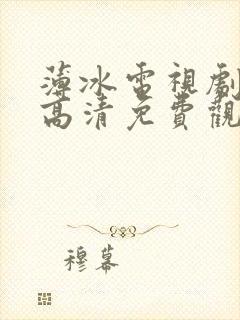 薄冰電視劇
高清免費觀
穆幕